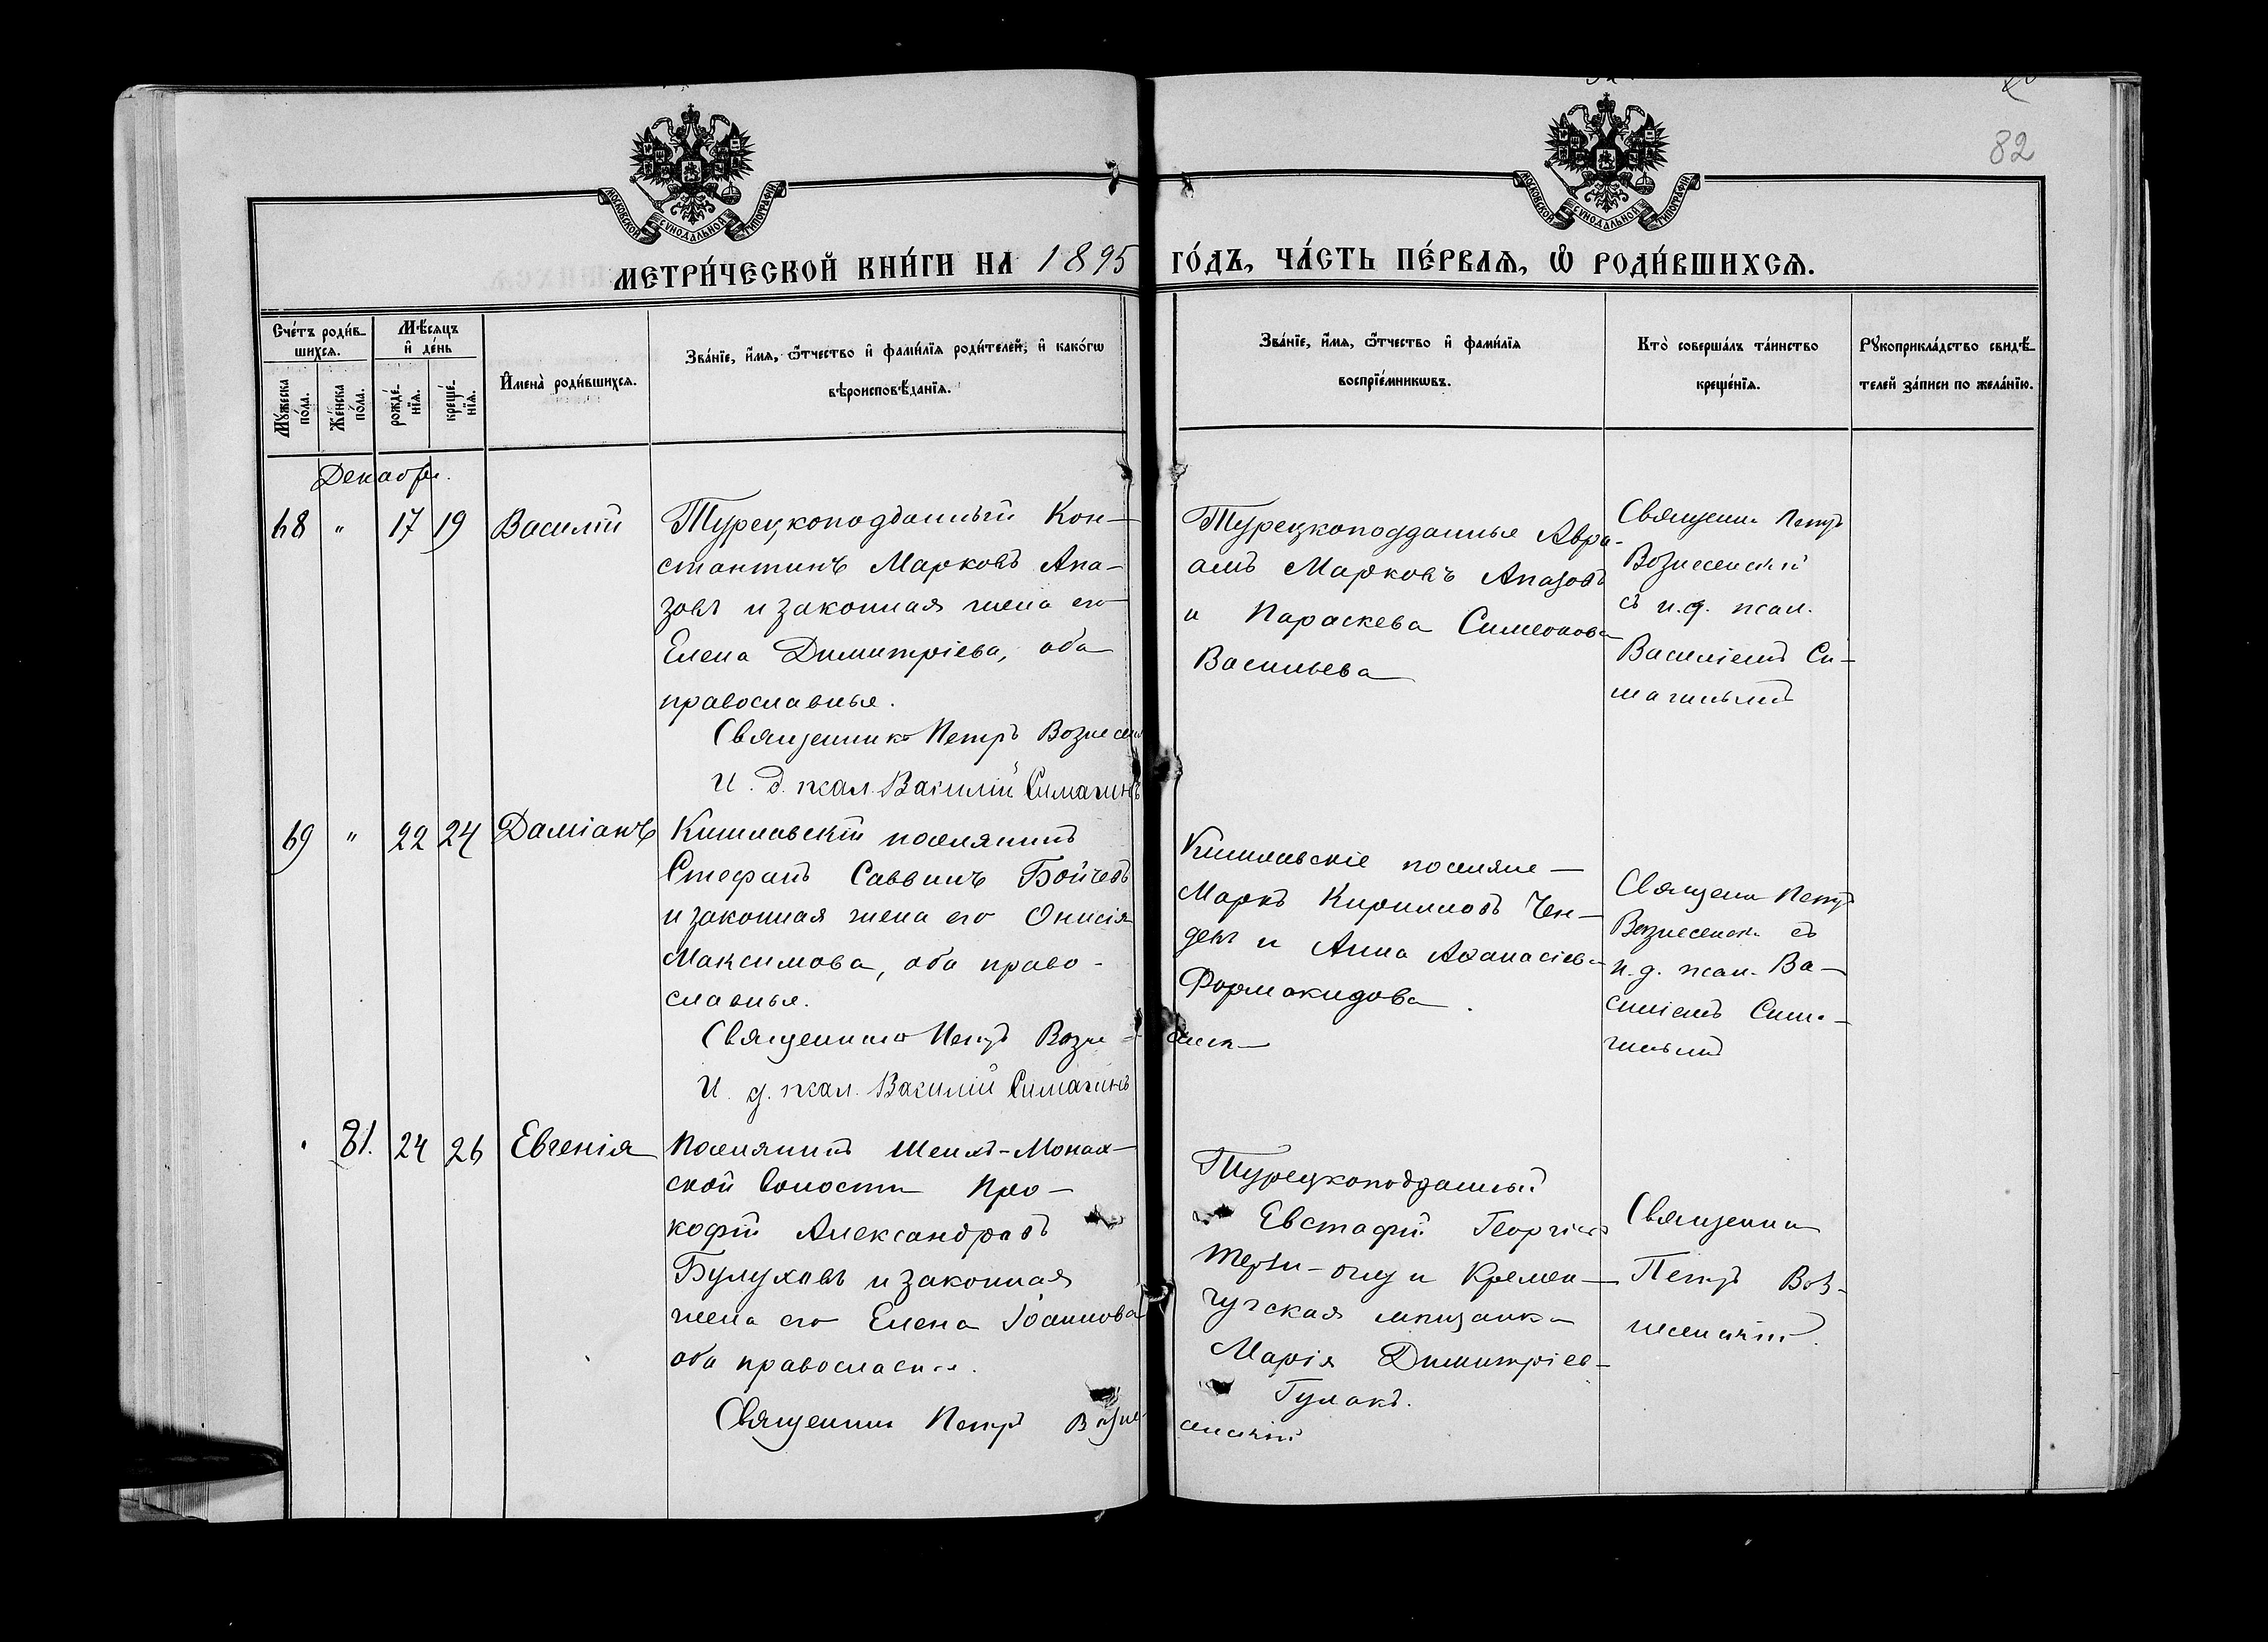 82
МОСКОВСКОЙ СУНОДАЛЬНОЙ ТИПОГРАФІИ
МОСКОВСКОЙ СУНОДАЛЬНОЙ ТИПОГРАФІИ
МЕТРИ́ЧЕСКОЙ КНИ́ГИ НА 1895 ГО́ДЪ, ЧА́СТЬ ПЕ́РВАѦ, Ѡ РОДИ́ВШИХСѦ.
Сче́тъ роди́в-
шихсѧ.
Мꙋ́жеска по́ла.
Же́нска по́ла.
Мѣ́сѧцъ
и҆ де́нь
рожде́нїѧ.
креще́нїѧ.
И҆мена̀ роди́вшихсѧ.
Зва́нїе, и҆́мѧ, ѻ҆́тчество и҆ фами́лїѧ роди́телей, и҆ како́гѡ
вѣроисповѣ́данїѧ.
Зва́нїе, и҆́мѧ, ѻ҆́тчество и҆ фами́лїѧ
воспрїе́мникѡвъ.
Кто̀ соверша́лъ та́инство
креще́нїѧ.
Рꙋкоприкла́дство свидѣ́-
телей за́писи по жела́нїю.
Декабрь.
68 " 17 19 Василій
Турецкоподданный Кон-
стантинъ Марковъ Апа-
зовъ и законная жена его
Елена Димитріева, оба
православные.
Священникъ Петръ Вознесен
И. д. псал. Василій Симагинъ
Турецкоподданные Авра-
амъ Марковъ Апазовъ
и Параскева Симеонова
Васильева
Священ. Петръ
Вознесенскій
съ и.д. псал.
Василіемъ Си-
магинымъ
69 " 22 24 Даміанъ
Кишлавскій поселянинъ
Стефанъ Саввинъ Бойчевъ
и законная жена его Онисія
Максимова, оба право-
славные.
Священникъ Петръ Возне-
сенск
И. д. псал. Василій Симагинъ
Кишлавскіе поселяне
Маркъ Кирилловъ Чен-
девъ и Анна Аѳанасіева
Формакидова.
Священ Петръ
Вознесенск. съ
и.д. псал. Ва-
силіемъ Сима-
гинымъ
81. 24 26 Евгенія
Поселянинъ Шейхъ-Монах-
ской волости Про-
кофій Александровъ
Булуховъ и законная
жена его Елена Іоаннова
оба православные.
Священник Петръ Возне-
сенскій
Турецкоподданный
Евстафій Георгіевъ
Терзи-оглу и Кремен-
чугская мѣщанка
Марія Димитріев-
Гулакъ.
Священник
Петръ Воз-
несенскій.